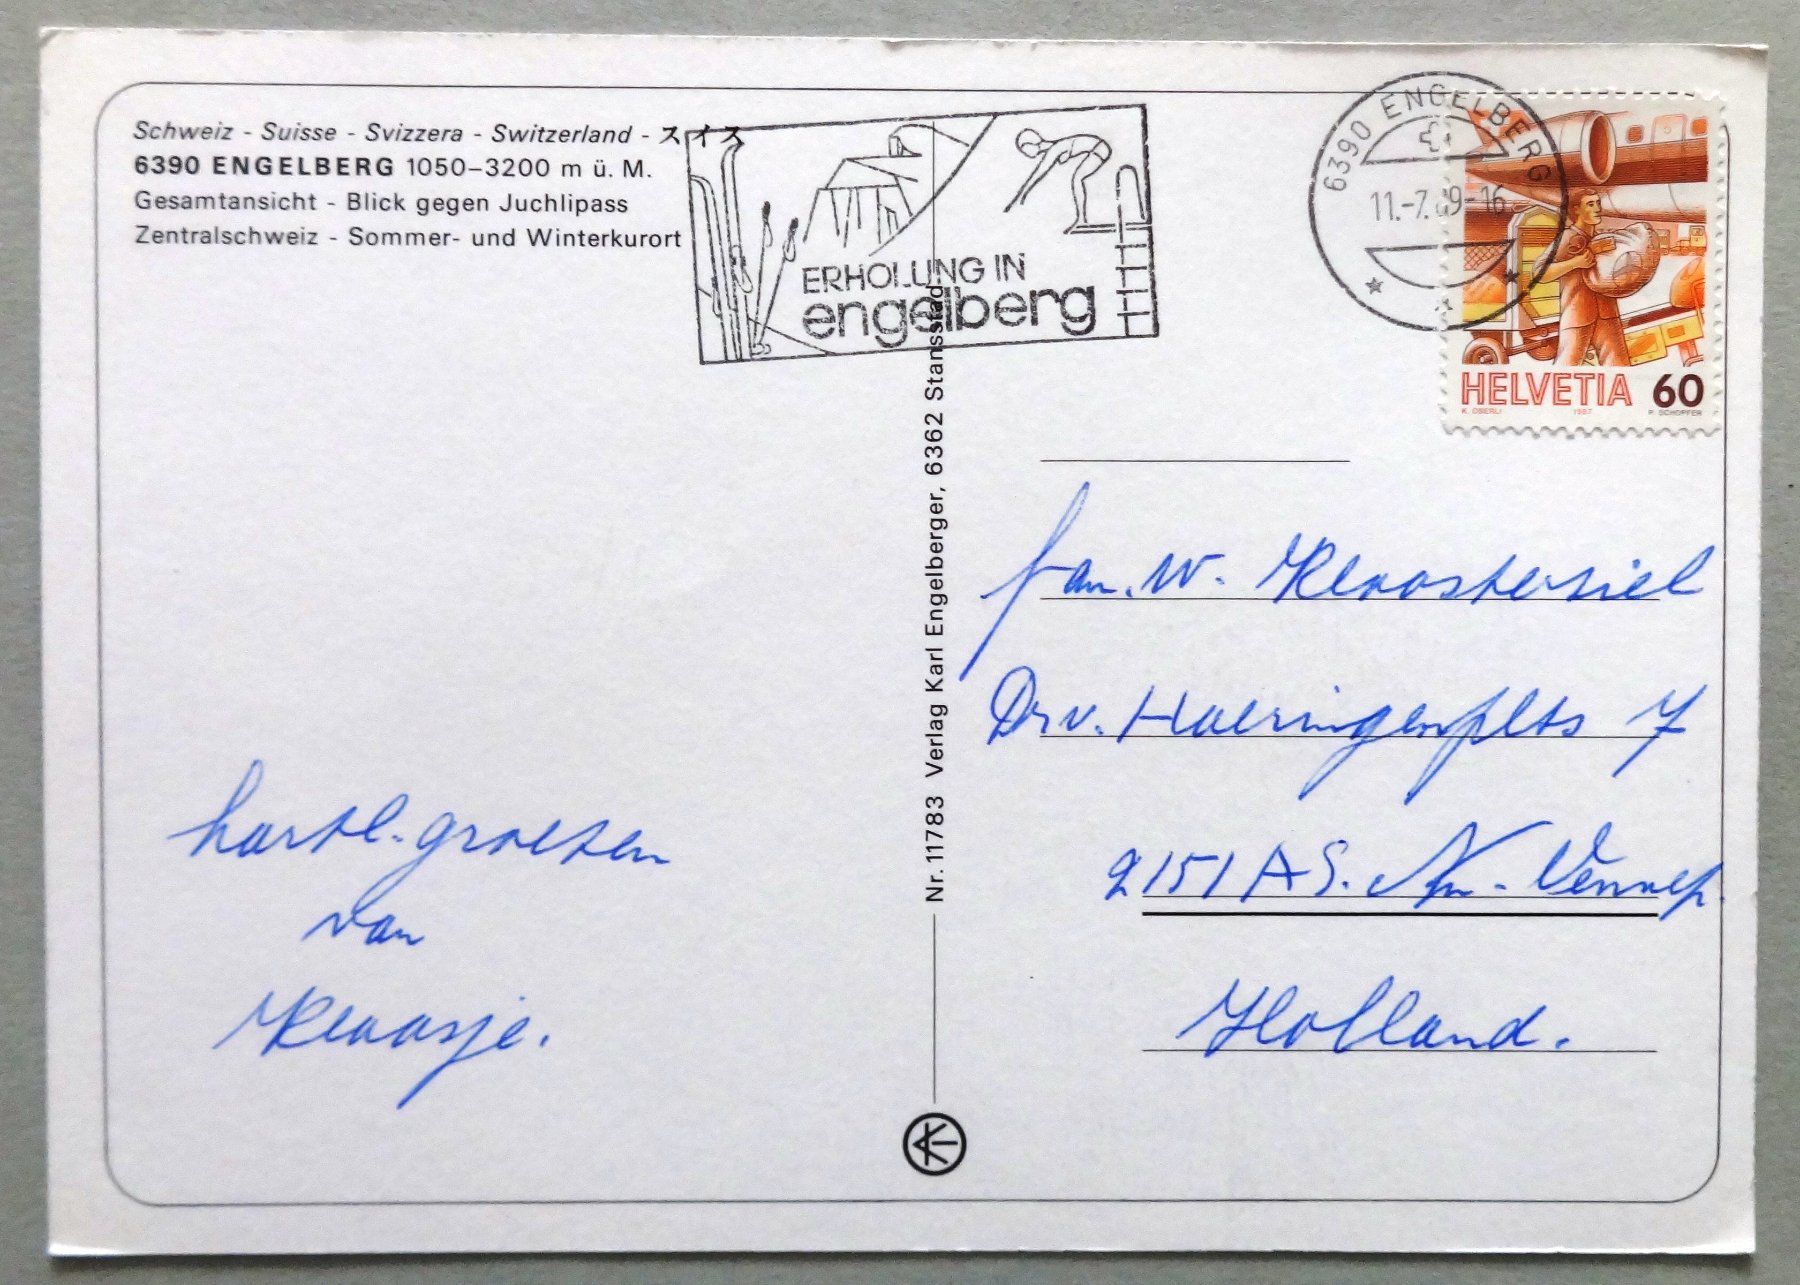 Schweiz - Suisse - Svizzera - Switzerland - スイス
6390 ENGELBERG 1050–3200 m ü. M.
Gesamtansicht - Blick gegen Juchlipass
Zentralschweiz - Sommer- und Winterkurort
ERHOLUNG IN
engelberg
6390 ENGELBERG
11.-7.89-16
HELVETIA 60
K. OBERLI 1987 P. SCHOPFER
Nr. 11783 Verlag Karl Engelberger, 6362 Stansstad
hartl. groeten
van
Klaasje.
fam. W. Kloosterziel
Dr v. Haeringenplts 7
2151 AS. Nw. Vennep.
Holland.